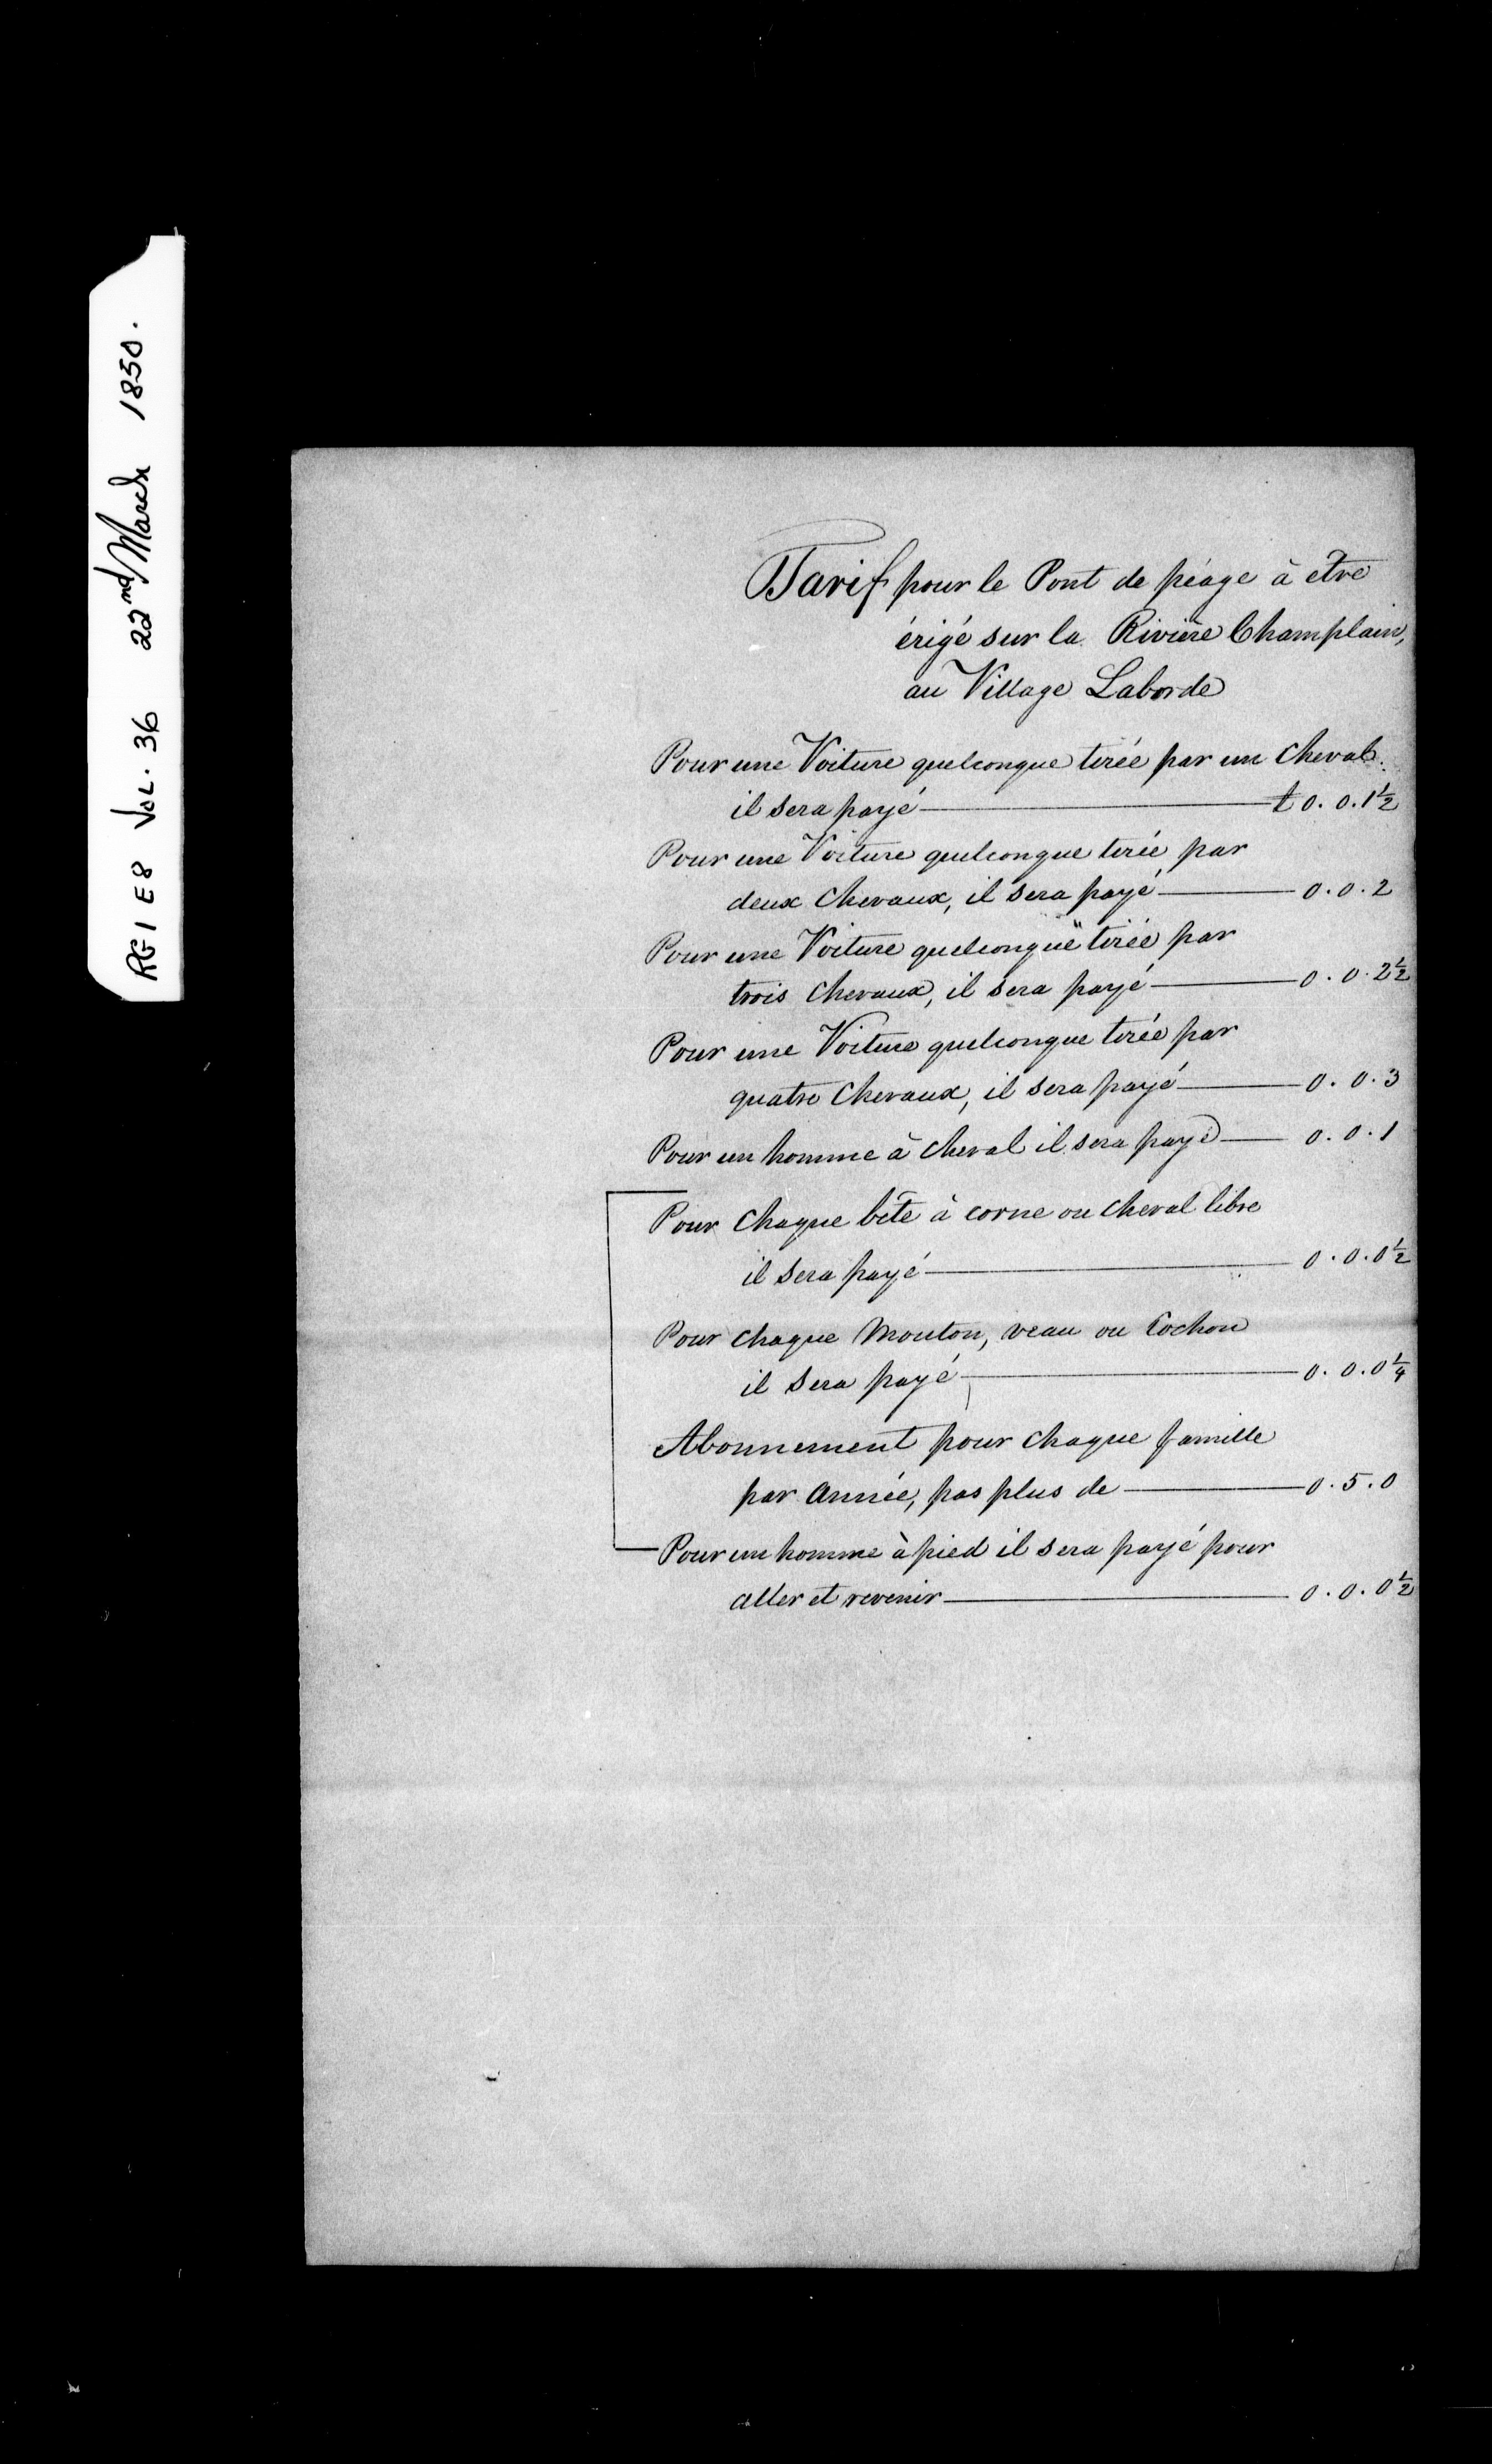 RG1 E8 VOL. 36 22nd March 1850.
Tarif pour le Pont de péage à être
érigé sur la Rivière Champlain,
au Village Laborde
Pour une Voiture quelconque tirée par un Cheval
il sera payé — £ 0. 0. 1½
Pour une Voiture quelconque tirée par
deux Chevaux, il sera payé — 0. 0. 2
Pour une Voiture quelconque tirée par
trois Chevaux, il sera payé — 0. 0. 2½
Pour une Voiture quelconque tirée par
quatre Chevaux, il sera payé — 0. 0. 3
Pour un homme à Cheval il sera payé — 0. 0. 1
Pour Chaque bête à corne ou Cheval libre
il sera payé — 0. 0. 0½
Pour Chaque Mouton, veau ou Cochon
il sera payé — 0. 0. 0¼
Abonnement pour Chaque famille
par Année, pas plus de — 0. 5. 0
Pour un homme à pied il sera payé pour
aller et revenir — 0. 0. 0½